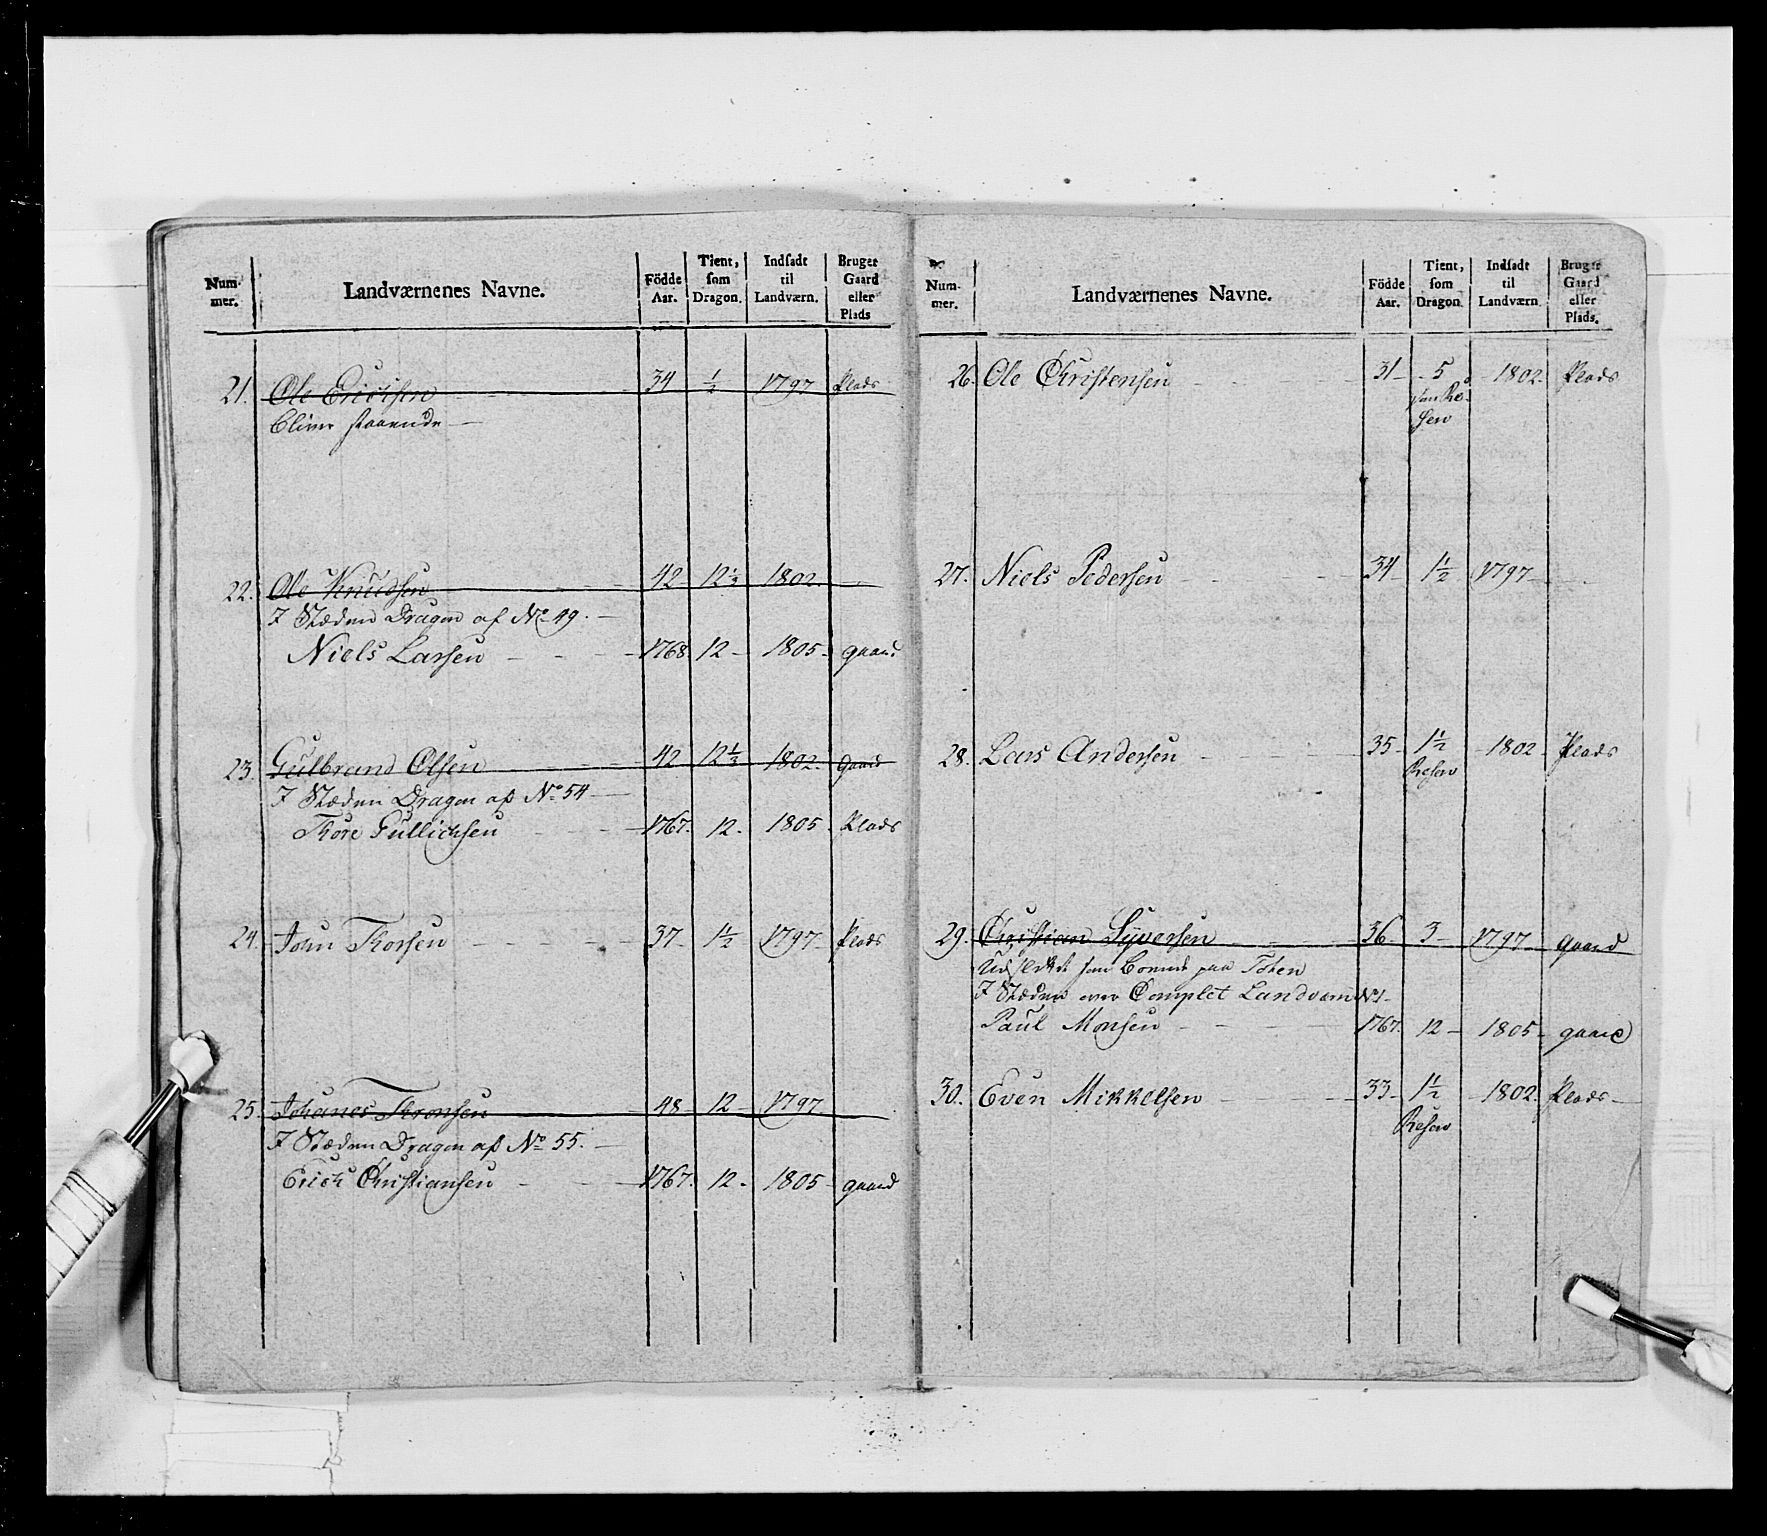 Nummer. Landværnenes Navne. Födde Aar. Tient, som Dragon. Indsadt til Landværn. Bruger Gaard eller Plads
21. Ole Erichsen 34 ½ 1797 Plads
bliver staaende
22. Ole Knudsen 42 12½ 1802.
I Stæden Dragon af No 49.
Niels Larsen 1768. 12 1805 gaard
23. Gulbrand Olsen 42 12½ 1802. gaard
I Stæden Dragon af No 54
Thore Gullichsen 1767. 12. 1805 Plads
24. John Thorsen 37 1½ 1797 Plads
25. Johanes Thronsen 48 12 1797
I Stæden Dragon af No 55.
Erich Christiansen 1767. 12 1805 gaard
Nummer. Landværnenes Navne. Födde Aar. Tient, som Dragon. Indsadt til Landværn. Bruger Gaard eller Plads.
26. Ole Christensen 31 5 1802. Plads
som Re-
serv
27. Niels Pedersen 34 1½ 1797
28. Lars Andersen 35 1½ 1802 Plads
Reserv
29. Christian Syversen 36 3 1797 gaard
Udslettet som boende paa Toten
I Stæden over Complet Landværn No 1
Paul Monsen 1767. 12 1805 gaard
30. Even Mikkelsen 33 1½ 1802 Plads
Reserv